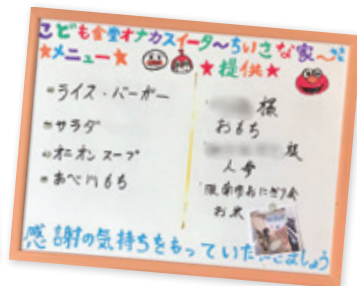 こども食堂オナカスイータ〜ちいさな家〜
★メニュー★
・ライス・バーガー
・サラダ
・オニオンスープ
・あべ川もち
★提供★
様
おもち
様
人参
阪南市おにぎり会
お米
感謝の気持ちをもっていただきましょう